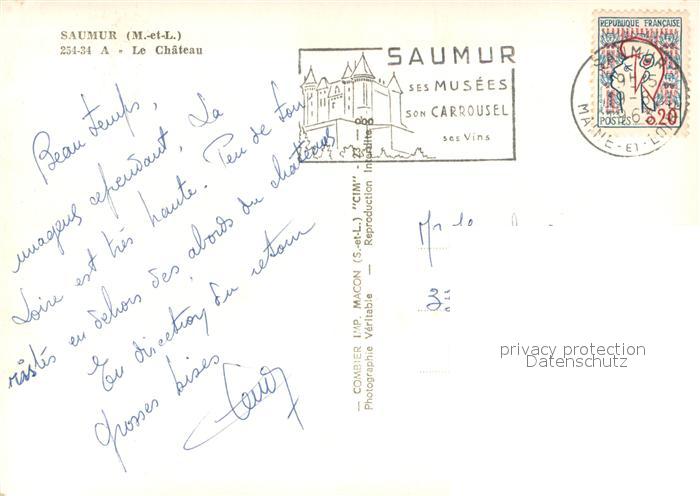 SAUMUR (M.-et-L.)
254-34 A - Le Château
Beau temps,
nuageux cependant. La
Loire est très haute. Peu de tou
ristes en dehors des abords du château
En direction du retour
grosses bises
SAUMUR
SES MUSÉES
SON CARROUSEL
ses Vins
RÉPUBLIQUE FRANÇAISE
POSTES 0,20
SAUMUR
MAINE-ET-LOIRE
— COMBIER IMP. MACON (S.-et-L.) "CIM" —
Photographie Véritable — Reproduction Interdite
privacy protection
Datenschutz